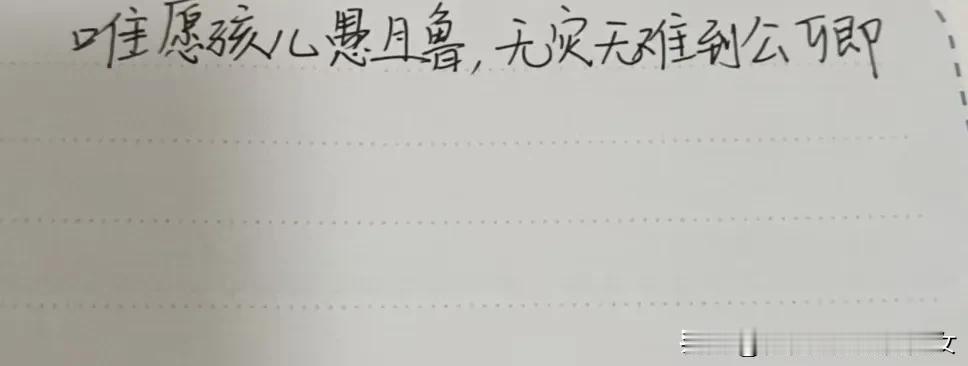 唯愿孩儿愚且鲁,无灾无难到公卿
女